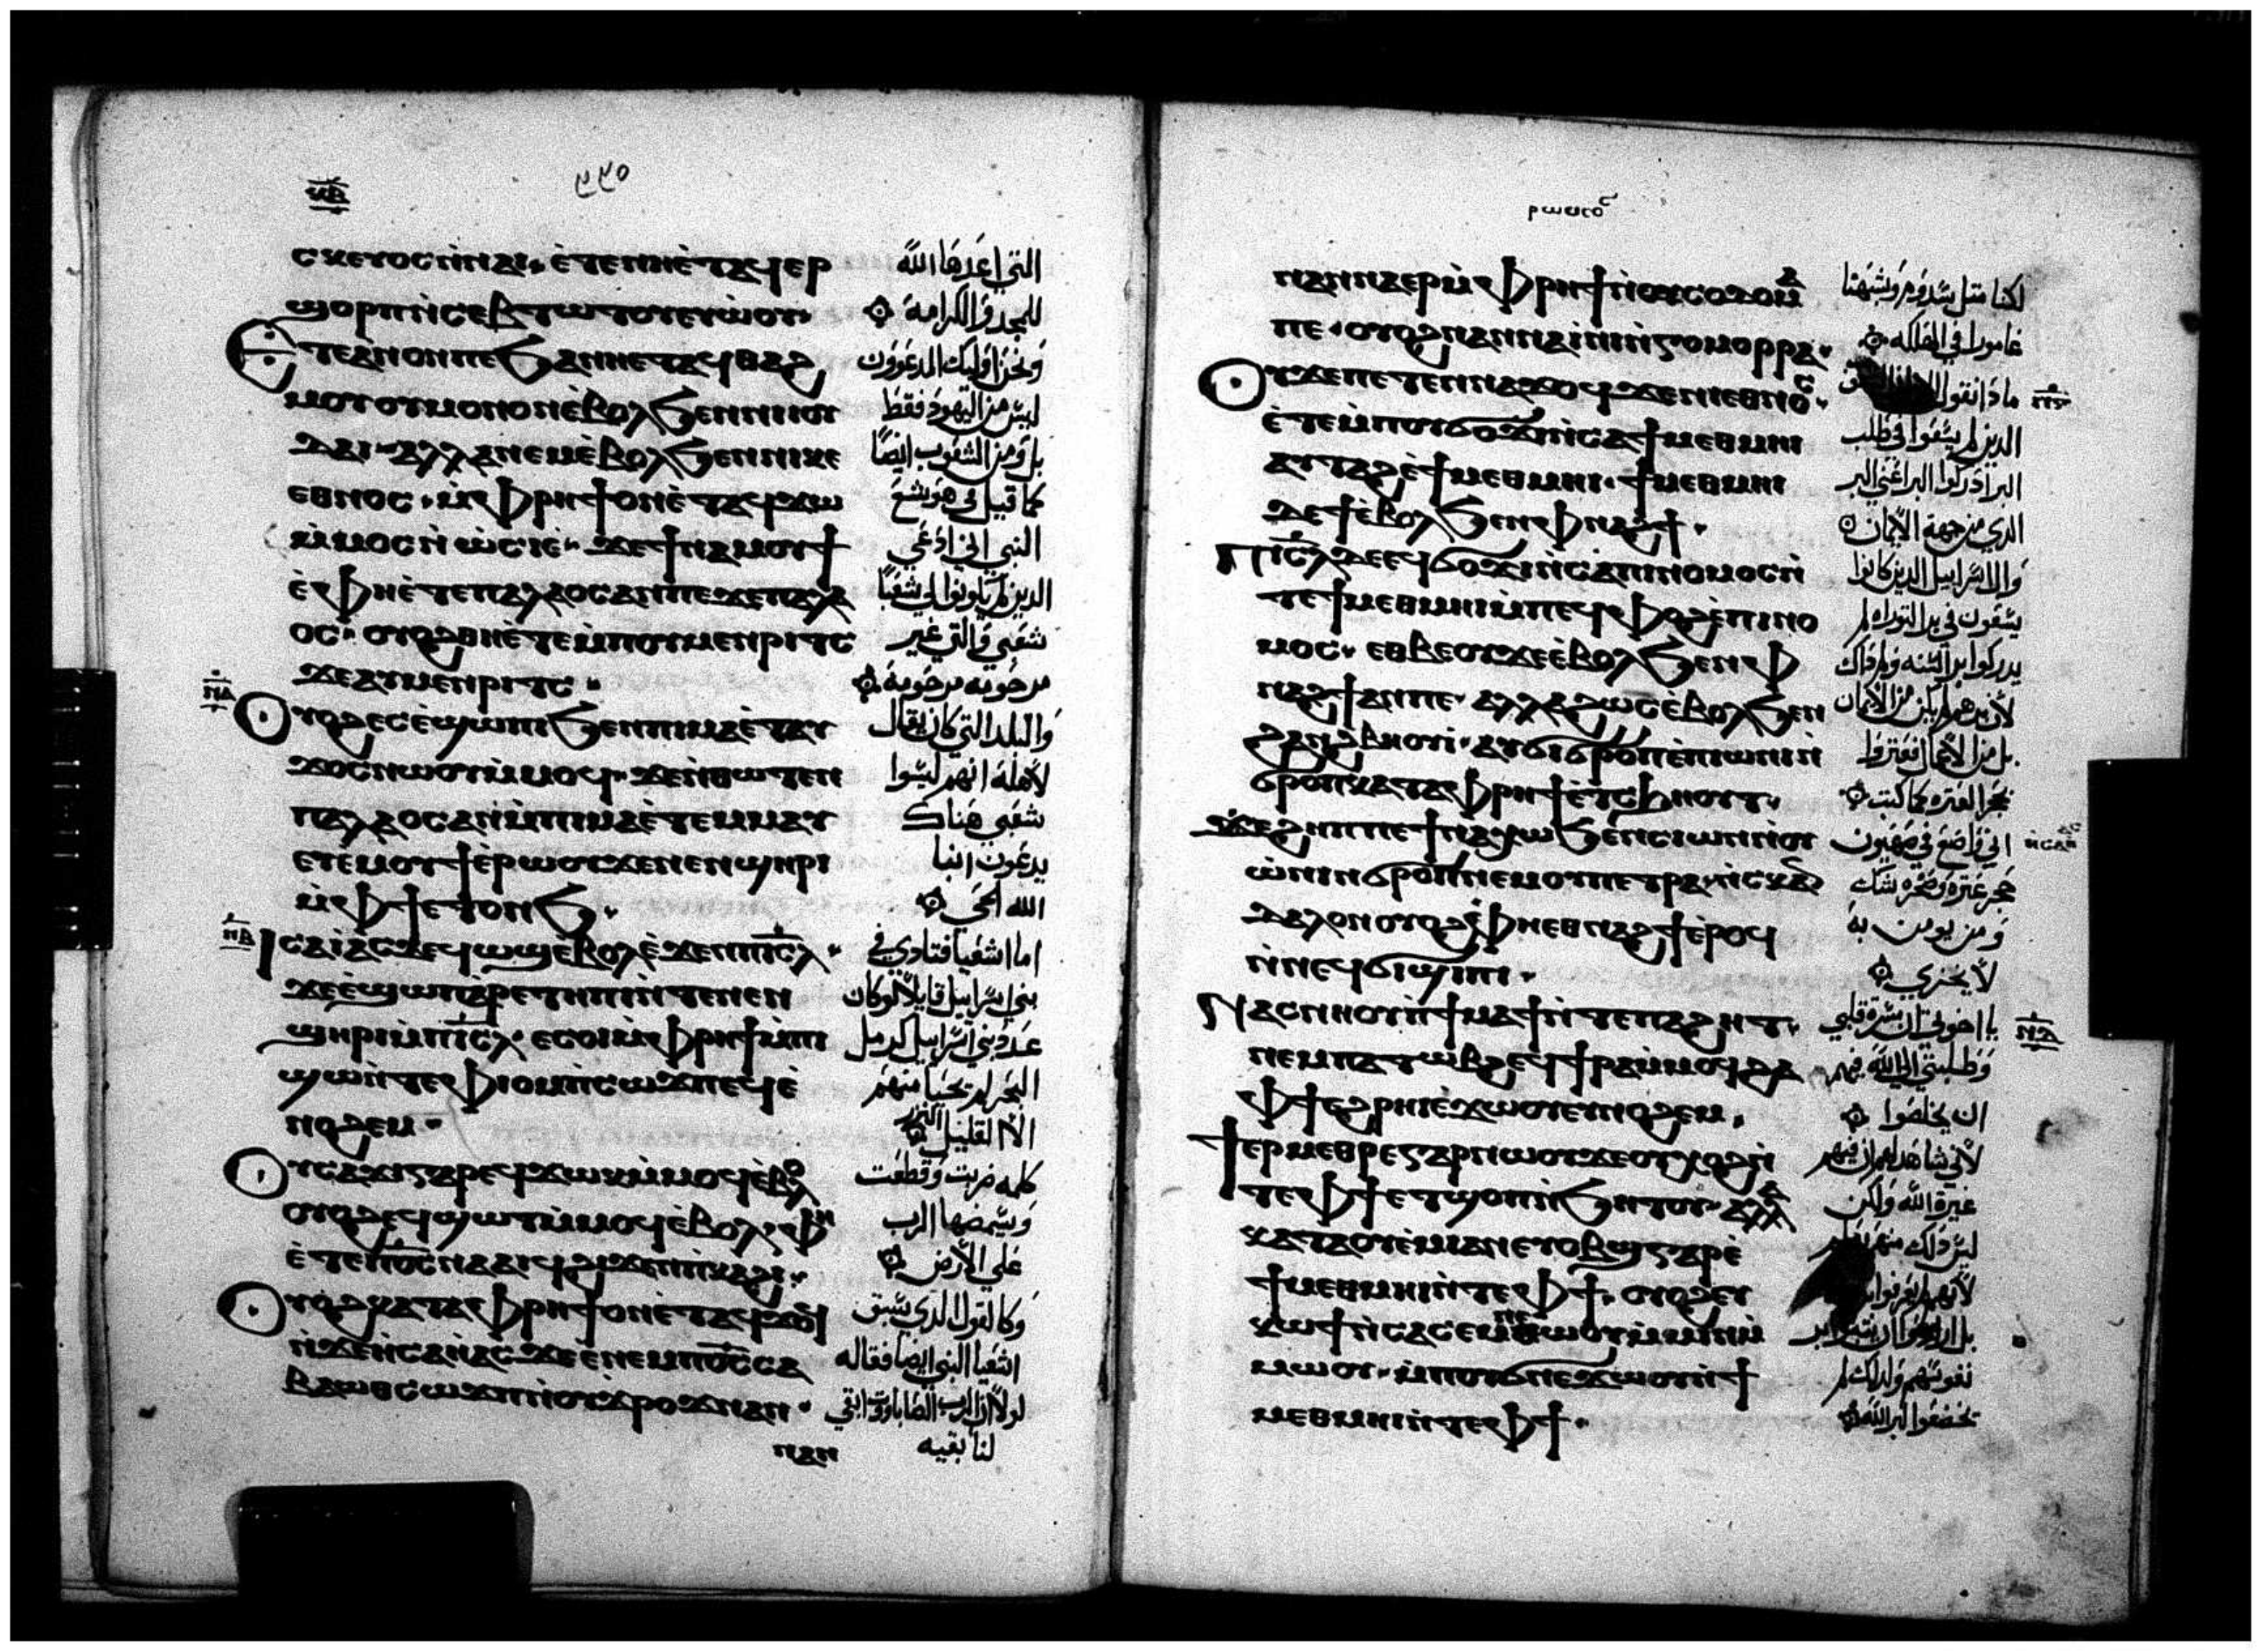 ⲕⲃ
٩٩٥
ⲥⲕⲉⲩⲟⲥ ⲛ̀ⲛⲁⲓ· ⲉ̀ⲧⲉⲛⲏⲉ̀ⲧⲁϥⲉⲣ
ϣⲟⲣⲡ ⲛ̀ⲥⲉⲃⲧⲱⲧⲟⲩ ⲉⲩⲱ̀ⲟⲩ·
Ⲉⲧⲉ ⲁⲛⲟⲛ ⲡⲉ ϧⲁⲛⲏⲉⲧⲁϥⲑⲁϩ
ⲙⲟⲩ ⲟⲩⲙⲟⲛⲟⲛ ⲉ̀ⲃⲟⲗ ϧⲉⲛ ⲛⲓⲓⲟⲩ
ⲇⲁⲓ· ⲁⲗⲗⲁ ⲛⲉⲙ ⲉ̀ⲃⲟⲗ ϧⲉⲛ ⲛⲓⲕⲉ
ⲉⲑⲛⲟⲥ· ⲙ̀ⲫⲣⲏϯ ⲟⲛ ⲉ̀ⲧⲁϥϫⲱ
ⲙ̀ⲙⲟⲥ ⲛ̀ⲱ̀ⲥⲓⲉ· ϫⲉ ϯⲛⲁⲙⲟⲩϯ
ⲉ̀ⲫⲏⲉ̀ⲧⲉ ⲡⲁⲗⲁⲟⲥ ⲁⲛ ⲡⲉ ϫⲉ ⲡⲁⲗⲁ
ⲟⲥ· ⲟⲩⲟϩ ⲑⲏⲉ̀ⲧⲉ ⲙ̀ⲡⲟⲩⲙⲉⲛⲣⲓⲧⲥ
ϫⲉ ⲁⲩⲙⲉⲛⲣⲓⲧⲥ·
ⲛⲁ
Ⲟⲩⲟϩ ⲉⲥⲉ̀ϣⲱⲡⲓ ϧⲉⲛ ⲡⲓⲙⲁ ⲉ̀ⲧⲁⲩ
ϫⲟⲥ ⲛⲱⲟⲩ ⲙ̀ⲙⲟϥ· ϫⲉ ⲛ̀ⲑⲱⲧⲉⲛ
ⲡⲁⲗⲁⲟⲥ ⲁⲛ ⲙ̀ⲡⲓⲙⲁ ⲉ̀ⲧⲉⲙⲙⲁⲩ
ⲉⲧⲉⲙⲟⲩϯ ⲉ̀ⲣⲱⲟⲩ ϫⲉ ⲛⲉⲛϣⲏⲣⲓ
ⲙ̀ⲫϯ ⲉⲧⲟⲛϧ·
ⲛⲃ
Ⲓⲥⲁⲓ̀ⲁⲥ ⲇⲉ ϥⲱϣ ⲉⲃⲟⲗ ⲉ̀ϫⲉⲛ ⲡⲓⲥ̅ⲗ̅·
ϫⲉ ⲉ̀ϣⲱⲡ ⲁⲣⲉ ⲧⲏⲡⲓ ⲛ̀ⲧⲉ ⲛⲉⲛ
ϣⲏⲣⲓ ⲙ̀ⲡⲓⲥ̅ⲗ̅· ⲉⲥⲟⲓ ⲙ̀ⲫⲣⲏϯ ⲙ̀ⲡⲓ
ϣⲱ ⲛ̀ⲧⲉ ⲫⲓⲟⲙ ⲡ̀ⲥⲱϫⲡ ⲡⲉϥⲉ̀
ⲛⲟϩⲉⲙ·
Ⲟⲩⲥⲁϫⲓ ⲅⲁⲣ ⲉϥϫⲱⲕ ⲙ̀ⲙⲟϥ ⲉ̀ⲃⲟⲗ
ⲟⲩⲟϩ ⲉϥϣⲱⲧ ⲙ̀ⲙⲟϥ ⲉ̀ⲃⲟⲗ· ⲫⲏ
ⲉ̀ⲧⲉ ⲡ̅ⲟ̅ⲥ̅ ⲛⲁⲁⲓϥ ϩⲓϫⲉⲛ ⲡⲓⲕⲁϩⲓ·
Ⲟⲩⲟϩ ⲕⲁⲧⲁ ⲫⲣⲏϯ ⲟⲛ ⲉ̀ⲧⲁϥϫⲟⲥ
ⲛ̀ϫⲉ ⲏ̀ⲥⲁⲏ̀ⲁⲥ ϫⲉ ⲉⲛⲉⲙ ⲡ̅ⲟ̅ⲥ̅ ⲥⲁ
ⲃⲁⲱⲑ ⲥⲱϫⲡ ⲛ̀ⲟⲩϫⲣⲟϫ ⲛⲁⲛ·
ⲛⲁⲛ
التي اعدها الله
للمجد والكرامة
ونحن اوليك المدعوون
ليس من اليهود فقط
بل ومن الشعوب ايضًا
كما قيل في هوشع
النبي اني ادعي
الذين لم يكونوا لي شعبًا
شعبي والتي غير
مرحومه مرحومة
والبلد التي كان يقال
لاهله انهم ليسوا
شعبي هناك
يدعون ابنا
الله الحي
اما اشعيا فنادي في
بني اسراييل قايلا لو كان
عدد بني اسراييل كرمل
البحر لم تحيا منهم
الا القليل النزر
كلمه ضربت وقطعت
ويتممها الرب
علي الارض
وكالقول الذي سبق
اشعيا النبي ايضا فقاله
لولا ان الرب الصاباووت ابقي
لنا بقيه
ⲛⲁⲛⲛⲁⲉⲣ ⲙ̀ⲫⲣⲏϯ ⲛ̀ⲟⲩⲥⲟⲇⲟⲙⲁ
ⲡⲉ· ⲟⲩⲟϩ ⲛⲁⲛⲛⲁⲓ̀ⲛⲓ ⲛ̀ⲅⲟⲙⲟⲣⲣⲁ·
Ⲟⲩ ϫⲉ ⲡⲉⲧⲉⲛⲛⲁϫⲟϥ ϫⲉ ⲛⲓⲉⲑⲛⲟⲥ·
ⲉ̀ⲧⲉ ⲙ̀ⲡⲟⲩϭⲟϫⲓ ⲛ̀ⲥⲁ ϯⲙⲉⲑⲙⲏⲓ
ⲁⲩⲧⲁϩⲉ̀ ϯⲙⲉⲑⲙⲏⲓ· ϯⲙⲉⲑⲙⲏⲓ
ⲇⲉ ϯⲉ̀ⲃⲟⲗ ϧⲉⲛ ⲫⲛⲁϩϯ·
Ⲡⲓⲥ̅ⲗ̅ ⲇⲉ ⲉϥϭⲟϫⲓ ⲛ̀ⲥⲁ ⲡⲓⲛⲟⲙⲟⲥ ⲛ̀
ⲧⲉ ϯⲙⲉⲑⲙⲏⲓ ⲙ̀ⲡⲉϥⲫⲟϩ ⲉ̀ⲡⲓⲛⲟ
ⲙⲟⲥ· ⲉⲑⲃⲉ ⲟⲩ ϫⲉ ⲉ̀ⲃⲟⲗ ϧⲉⲛ ⲫ
ⲛⲁϩϯ ⲁⲛ ⲡⲉ· ⲁⲗⲗⲁ ϩⲱⲥ ⲉ̀ⲃⲟⲗ ϧⲉⲛ
ϩⲁⲛϩⲃⲏⲟⲩⲓ· ⲁⲩϭⲓϭⲣⲟⲡ ⲉ̀ⲡⲓⲱⲛⲓ ⲛ̀
ϭⲣⲟⲡ ⲕⲁⲧⲁ ⲫⲣⲏϯ ⲉ̀ⲧⲥϧⲏⲟⲩⲧ·
Ϫⲉ ϩⲏⲡⲡⲉ ϯⲛⲁⲭⲱ ϧⲉⲛ ⲥⲓⲱⲛ ⲛ̀ⲟⲩ
ⲱ̀ⲛⲓ ⲛ̀ϭⲣⲟⲡ ⲛⲉⲙ ⲟⲩⲡⲉⲧⲣⲁ ⲛ̀ⲥⲕⲁⲛ
ⲇⲁⲗⲟⲛ ⲟⲩⲟϩ ⲫⲏⲉⲑⲛⲁϩϯ ⲉ̀ⲣⲟϥ
ⲛ̀ⲛⲉϥϭⲓϣⲓⲡⲓ·
Ⲛⲁⲥⲛⲏⲟⲩ ⲛ̀ϯⲙⲁϯ ⲛ̀ⲧⲉ ⲡⲁϩⲏⲧ·
ⲛⲉⲙ ⲡⲁⲧⲱⲃϩ ⲉϥϯⲣⲁ ⲙ̀ⲙⲟϥ ϩⲁ
ⲫϯ ⲉϩⲣⲏⲓ ⲉ̀ϫⲱⲟⲩ ⲉⲡⲛⲟϩⲉⲙ·
Ϯⲉⲣⲙⲉⲑⲣⲉ ⲅⲁⲣ ⲛⲱⲟⲩ ϫⲉ ⲟⲩⲭⲟϩ ⲛ̀
ⲧⲉ ⲫϯ ⲉⲧϣⲟⲡ ⲛ̀ϧⲏⲧⲟⲩ· ⲁⲗⲗⲁ
ⲕⲁⲧⲁ ⲟⲩⲉ̀ⲙⲓ ⲁⲛ ⲉⲩⲟⲃϣ ⲅⲁⲣ ⲉ̀
ϯⲙⲉⲑⲙⲏⲓ ⲛ̀ⲧⲉ ⲫϯ· ⲟⲩⲟϩ ⲉⲩ
ⲕⲱϯ ⲛ̀ⲥⲁ ⲥⲉⲙⲛⲉ ⲑⲱⲟⲩ ⲙ̀ⲙⲓⲛ ⲙ̀
ⲙⲱⲟⲩ· ⲙ̀ⲡⲟⲩϭⲛⲉϫⲱⲟⲩ ⲛ̀ϯ
ⲙⲉⲑⲙⲏⲓ ⲛ̀ⲧⲉ ⲫϯ·
لكنا مثل سدوم وشبهنا
غامورا في الهلكه
ماذا نقول
الذين لم يسعوا في طلب
البر ادركوا البر اعني البر
الذي من جهة الايمان
وال اسراييل الذين كانوا
يسعون في بر التوراه لم
يدركوا بر السنه ولم ذاك
لان برهم لم يكن من الايمان
بل من الاعمال فعثروا
بحجر العثره كما كتب
اني واضع في صهيون
حجر عثرة وصخره شك
ومن يومن به
لا يخزي
يا اخوتي ان مسرة قلبي
وطلبتي الي الله فيهم
ان يخلصوا
لاني شاهد لهم ان فيهم
غيرة الله ولكن
ليس ذلك منهم
لانهم لم يعرفوا
بل ارادوا ان يثبتوا بر
نفوسهم ولذلك لم
يخضعوا لبر الله